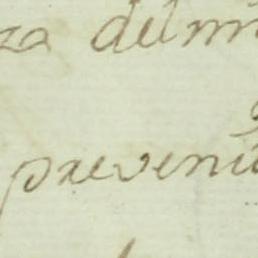 za del mi
preveni